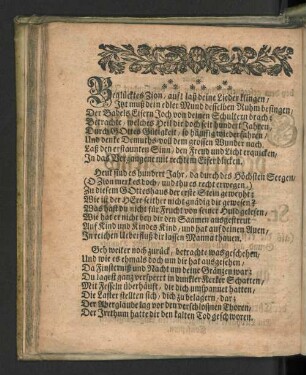 Beglücktes Zion, auf! laß deine Lieder klingen/
Itzt muß dein edler Mund desselben Ruhm besingen
Der Babels Eisern Joch von deinen Schultern brach:
Betrachte, welches Heil dir doch seit hundert Jahren,
Durch GOttes Gütigkeit, so häuffig wiederfahren/
Und denke Demuths voll dem grossen Wunder nach.
Laß den erstaunten Sinn, den Freud und Licht erquicken,
In das Vergangene mit rechtem Eifer blicken.
Heut sind es hundert Jahr, da durch des Höchsten Seegen/
(O Zion merk es doch, und thu es recht erwegen.)
Zu diesem GOtteshaus der erste Stein geweyht:
Wie ist der HErr seither nicht gnädig dir gewesen?
Was hast du nicht für Frucht von seiner Huld gelesen,
Wie hat er nicht bey dir den Saamen ausgestreut
Auf Kind und Kindes Kind, und hat auf deinen Auen,
In reichen Ueberfluß dir lassen Manna thauen.
Geh weiter noch zurück, betrachte was geschehen,
Und wie es ehmals doch um dir hat ausgesehen,
Da Finsternuß und Nacht um deine Gränzen war:
Du lagest ganz versperrt in dunkler Kerker Schatten,
Mit Fesseln überhäuft, die dich umspannet hatten,
Die Laster stellten sich, dich zu belagern, dar:
Der Aberglaube lag vor den verschloßnen Thoren,
Der Irrthum hatte dir den kalten Tod geschworen.